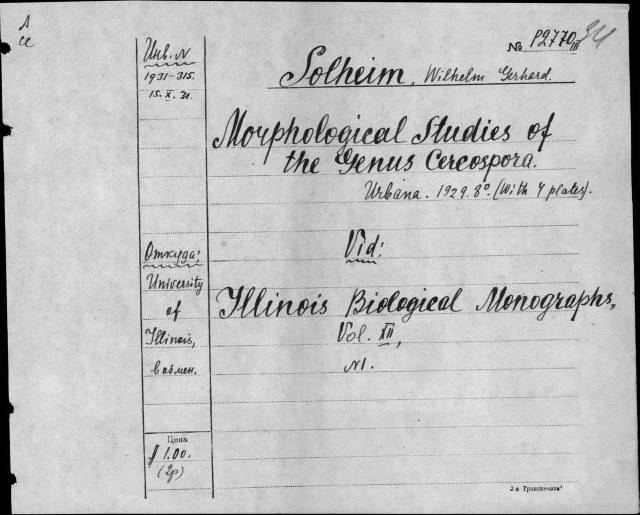 А
се
№ P2770/III 34
Инв. N
1931-315.
15.X.31.
Solheim, Wilhelm Gerhard.
Morphological Studies of
the Genus Cercospora.
Urbana. 1929. 8°. (With 4 plates).
Откуда:
University
of
Illinois,
в обмен.
Vid:
Illinois Biological Monographs,
Vol. XII,
N1.
Цена
$ 1.00.
(2р)